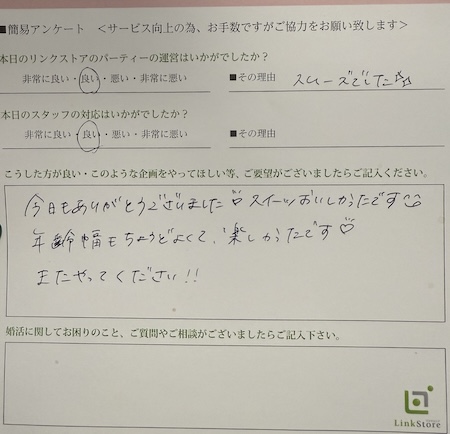 ■簡易アンケート ＜サービス向上の為、お手数ですがご協力をお願い致します＞
本日のリンクストアのパーティーの運営はいかがでしたか？
非常に良い・良い・悪い・非常に悪い ■その理由 スムーズでした☆☆
本日のスタッフの対応はいかがでしたか？
非常に良い・良い・悪い・非常に悪い ■その理由
こうした方が良い・このような企画をやってほしい等、ご要望がございましたらご記入ください。
今日もありがとうございました♡スイーツおいしかったです☺
年齢幅もちょうどよくて、楽しかったです♡
またやってください!!
婚活に関してお困りのこと、ご質問やご相談がございましたらご記入下さい。
LinkStore